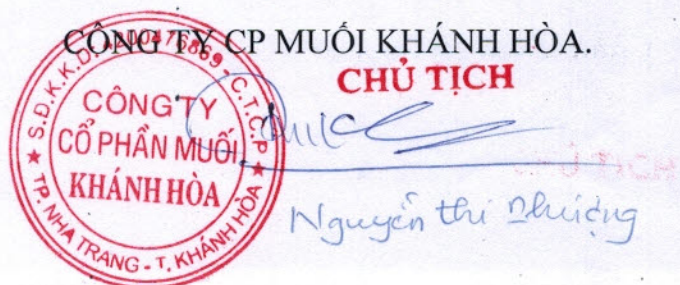 CÔNG TY CP MUỐI KHÁNH HÒA.
CHỦ TỊCH
S.Đ.K.K.D: 4200476869 - C.T.C.P
CÔNG TY
CỔ PHẦN MUỐI
KHÁNH HÒA
TP. NHA TRANG - T. KHÁNH HÒA
Nguyễn thị